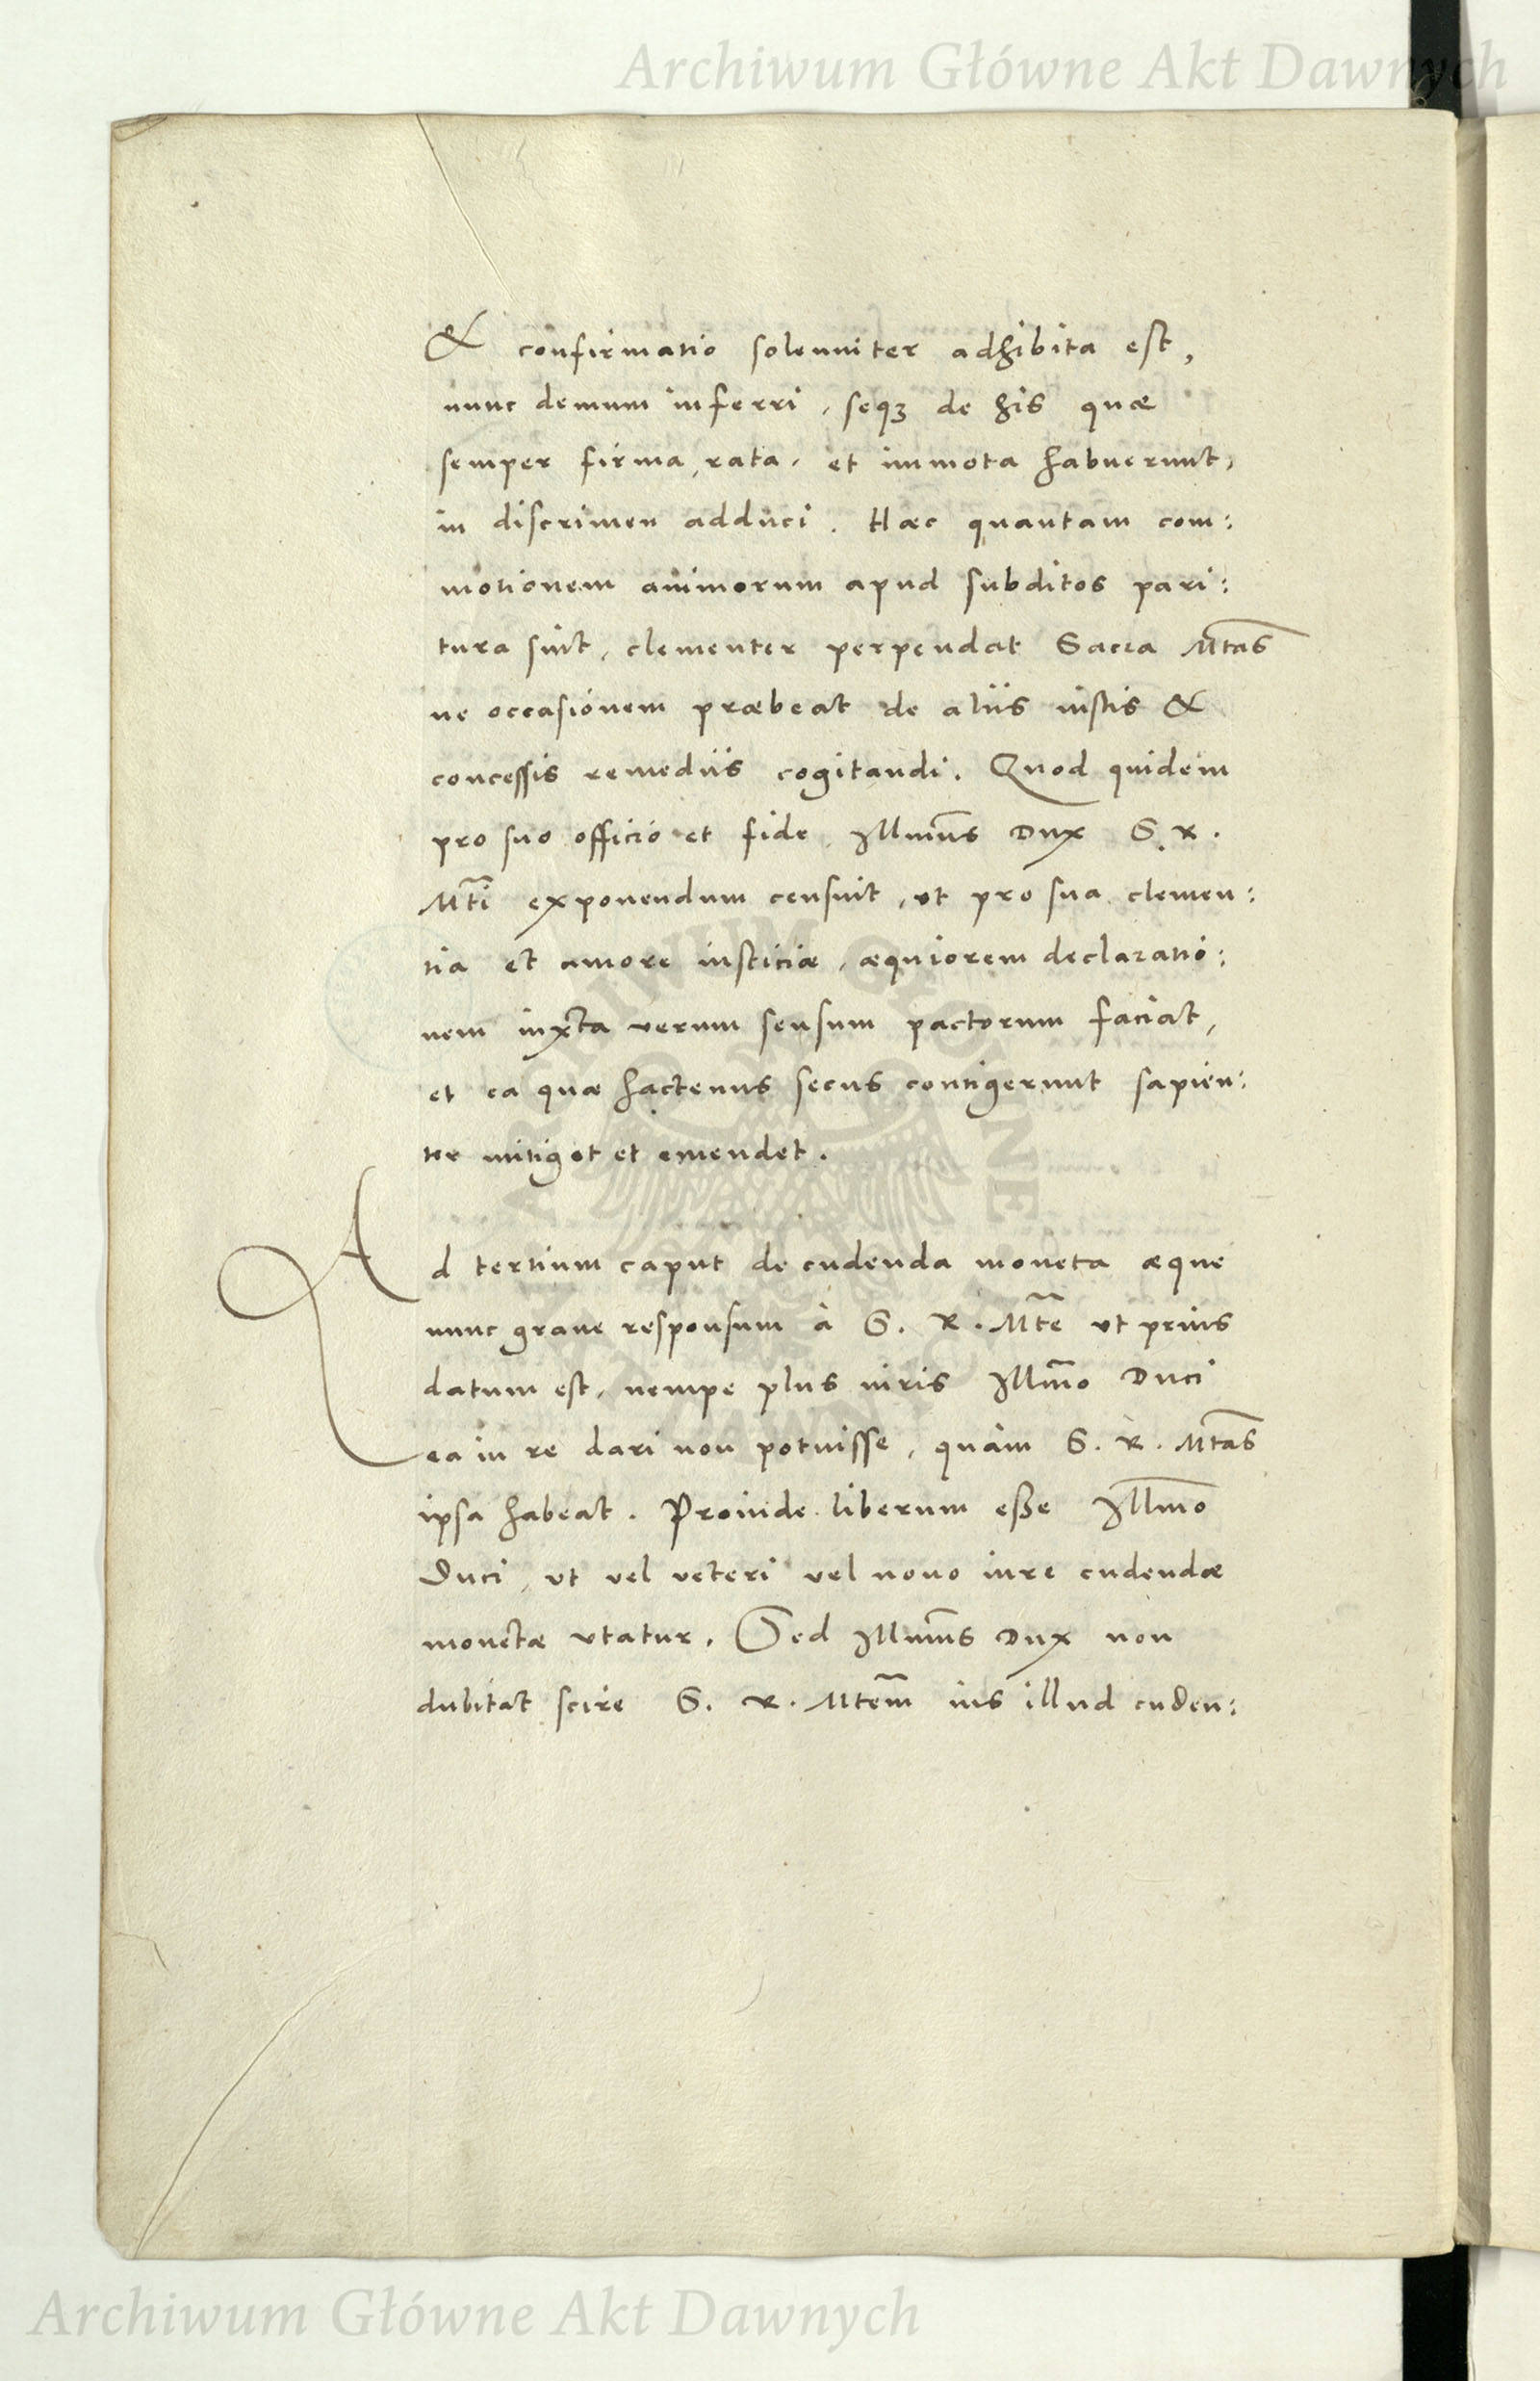 Archiwum Główne Akt Dawnych
& confirmatio solenniter adhibita est,
nunc demum inferri, seq3 de his quæ
semper firma, rata, et immota habuerunt,
in discrimen adduci. Hæc quantam com:
motionem animorum apud subditos pari:
tura sint, clementer perpendat Sacra Mtas
ne occasionem præbeat de aliis iustis &
concessis remediis cogitandi. Quod quidem
pro suo officio et fide, Illmus Dux S. R.
Mti exponendum censuit, ut pro sua clemen:
tia et amore iusticiæ, æquiorem declaratio:
nem iuxta verum sensum pactorum faciat,
et ea quæ hactenus secus contigerunt sapien:
ter mitiget et emendet.
Ad tertium caput de cudenda moneta æque
nunc graue responsum à S. R. Mte vt prius
datum est, nempe plus iuris Illmo Duci
ea in re dari non potuisse, quàm S. R. Mtas
ipsa habeat. Proinde liberum esse Illmo
Duci, vt vel veteri vel nouo iure cudendæ
monetæ vtatur. Sed Illmus Dux non
dubitat scire S. R. Mtem ius illud cuden:
Archiwum Główne Akt Dawnych